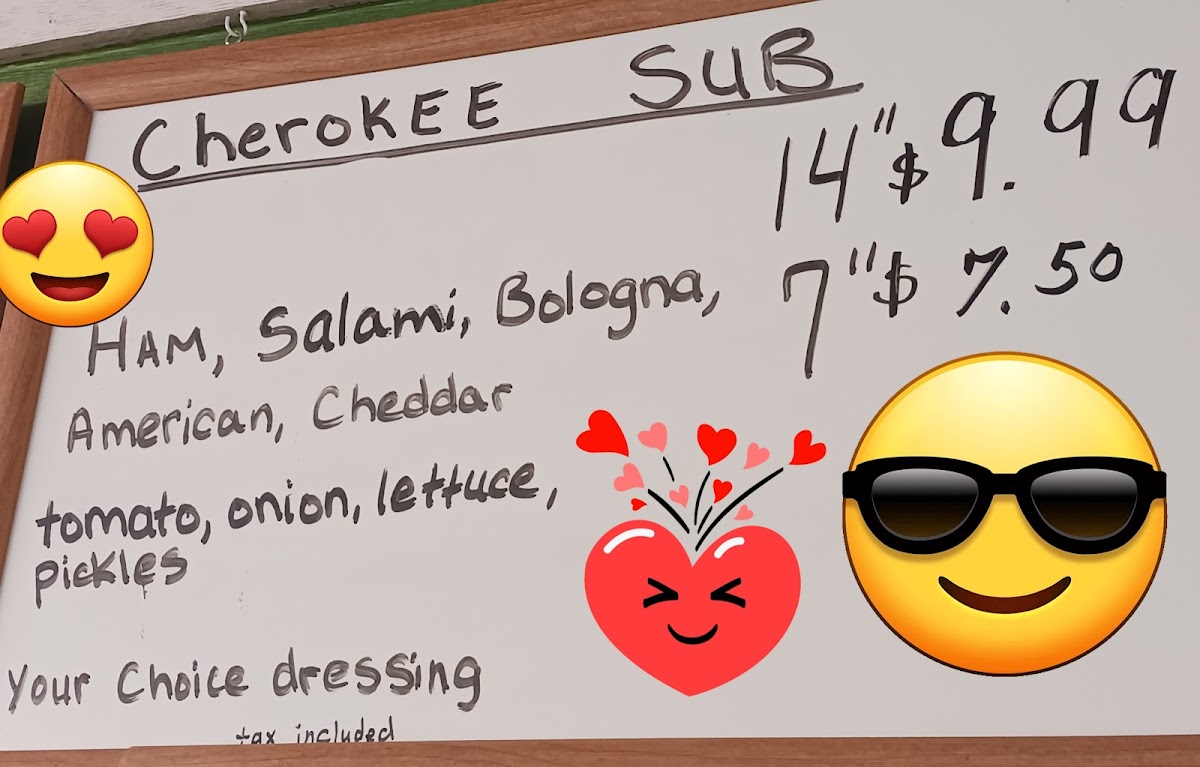 CherokEE SUB
14" $9.99
7" $7.50
HAM, Salami, Bologna,
American, Cheddar
tomato, onion, lettuce,
pickles
Your Choice dressing
tax included